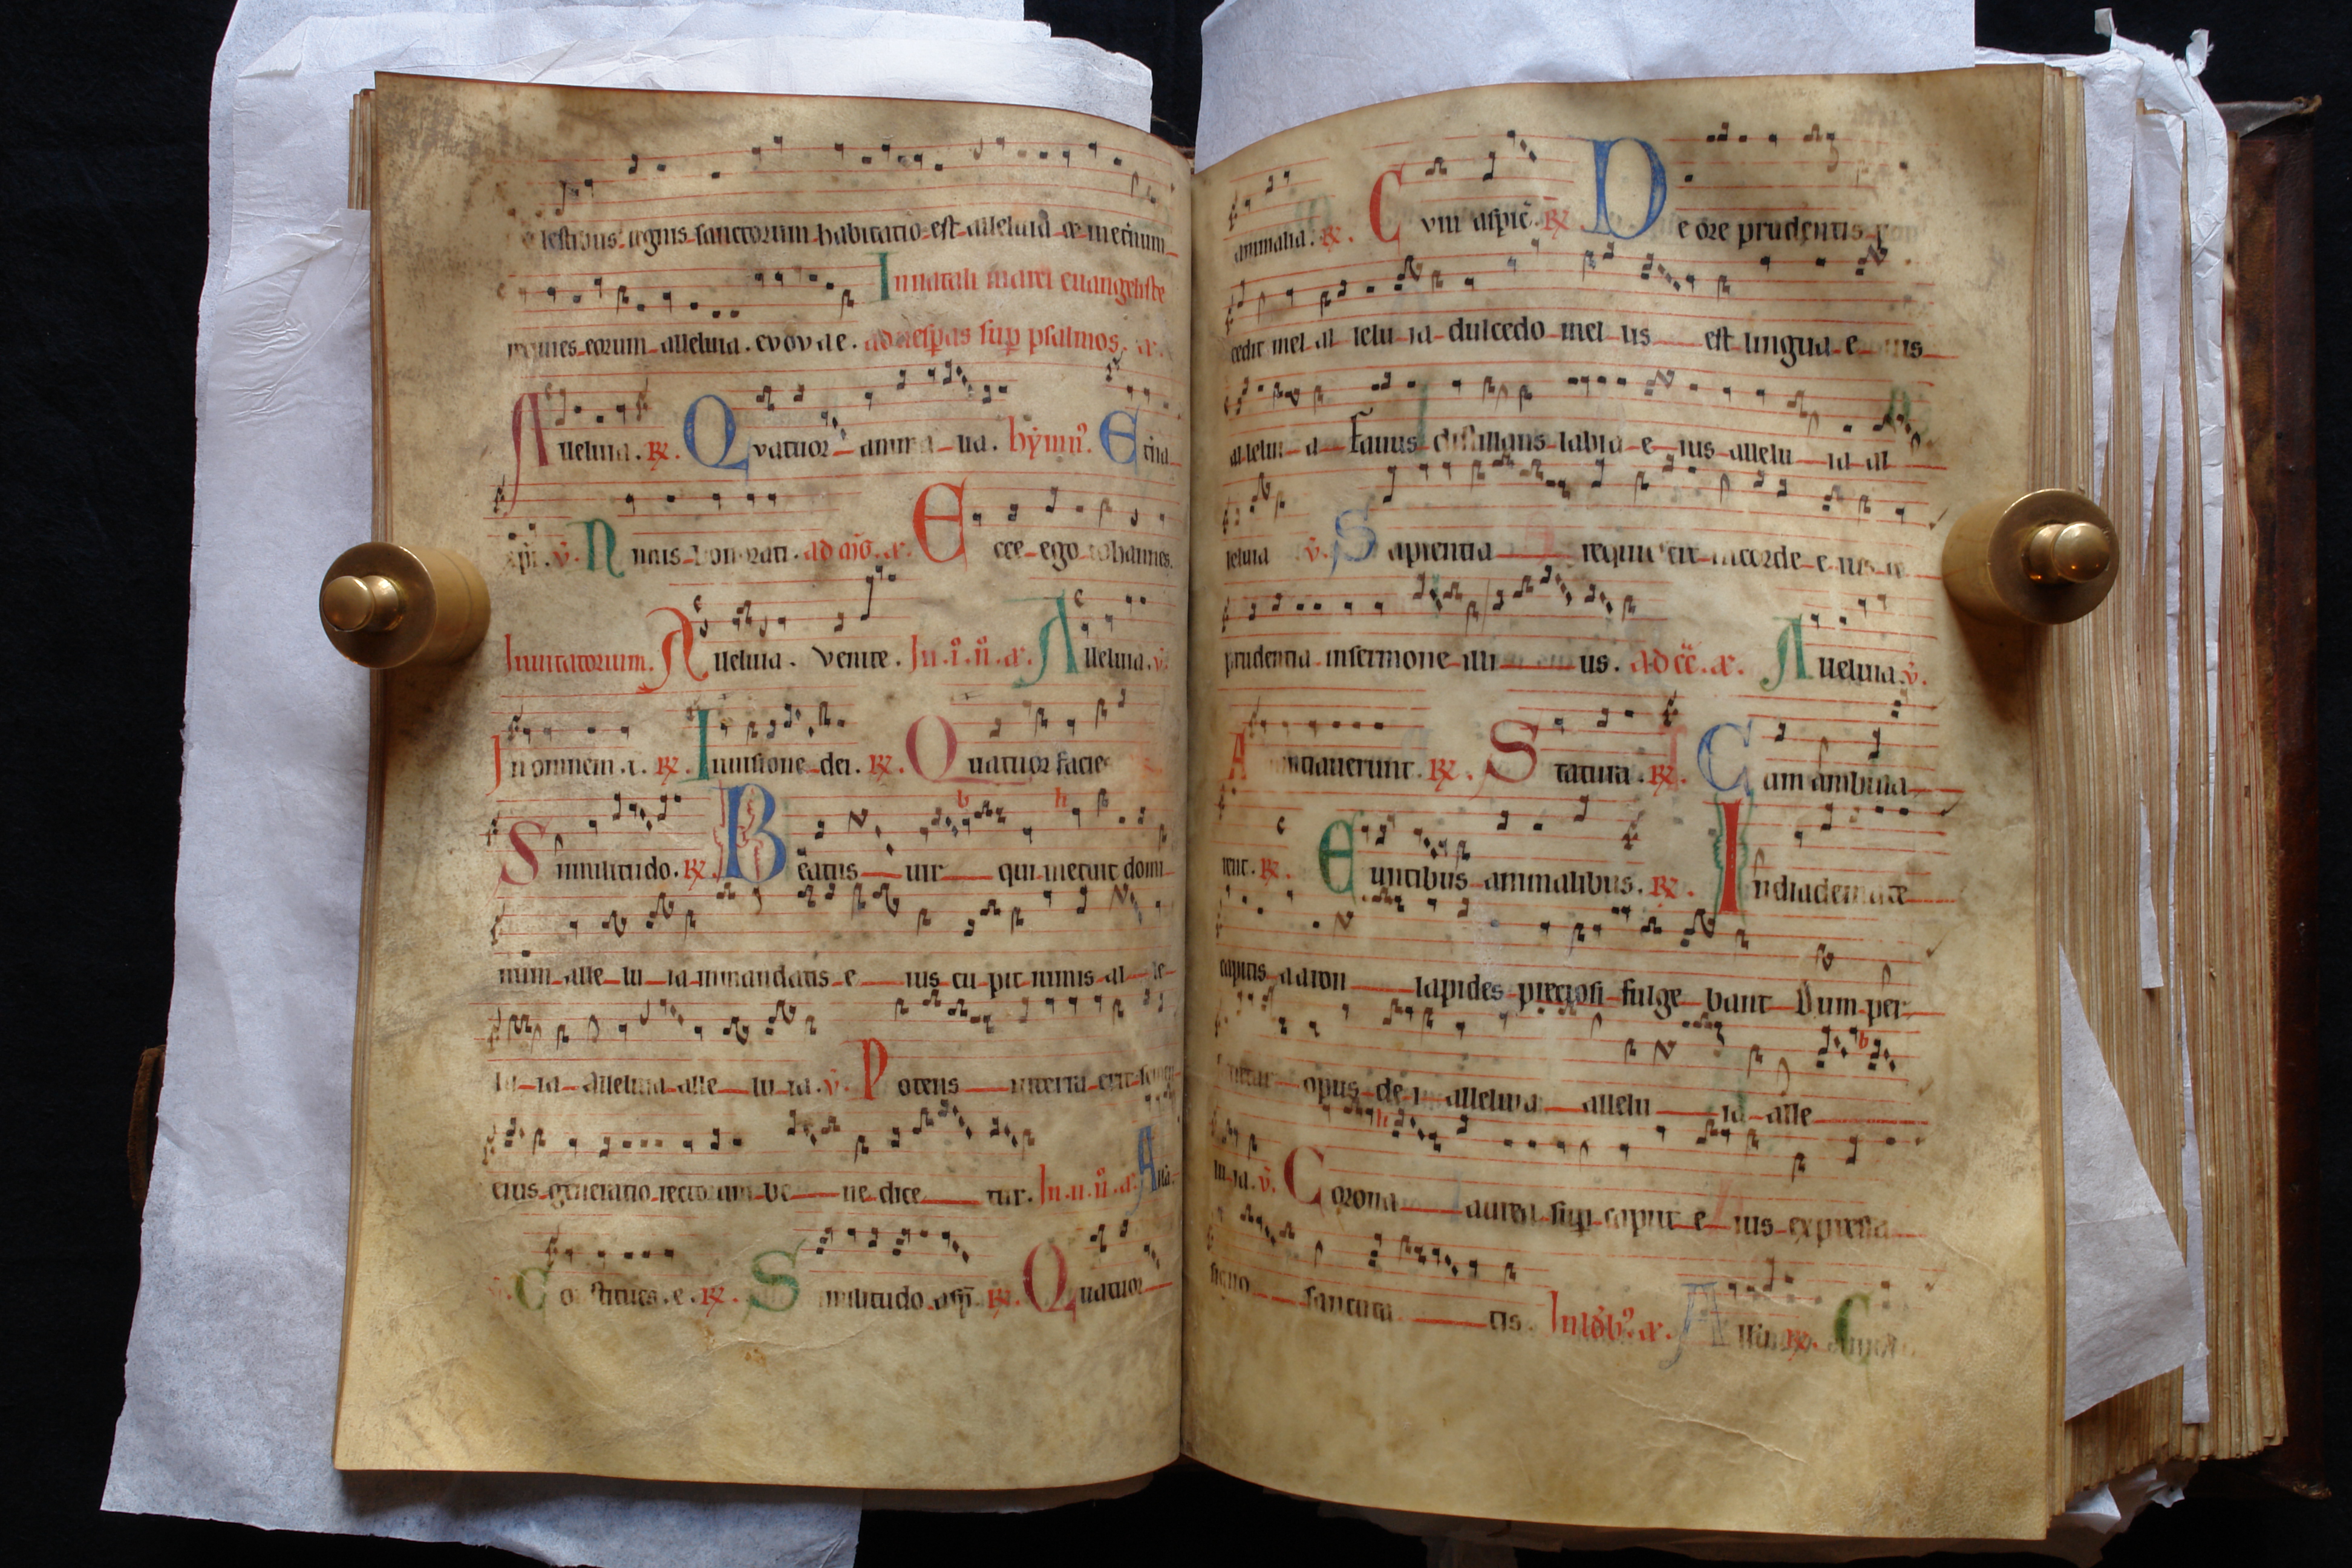 lestibus regnis sanctorum habitatio est alleluia & in eternum
requies eorum alleluia. evovae. ad uespas sup psalmos. a.
In natali marci euangeliste
Alleluia. R. Quatuor animalia. hymn. Eterna
xpi. v. Nimis honorati. ad m. a. Ecce ego iohannes.
Inuitatorium. Alleluia. Venite. In. i. n. a. Alleluia. v.
In omnem. t. R. In uisione dei. R. Quatuor facies
Similitudo. R. Beatus uir qui metuit domi
num alle lu ia in mandatis e ius cu pit nimis al le
lu ia alleluia alle lu ia. v. Potens in terra erit semen
eius generatio rectorum be ne dice tur. In. ii. n. a. Alla.
v. Constitues. e. R. Similitudo asp. R. Quatuor
animalia. R. Cum aspic. R. De ore prudentis p
cedit mel al lelu ia dulcedo mel lis est lingua e ius
allelui a Fauus distillans labia e ius allelu ia al
leluia v. Sapientia requieuit in corde e ius &
prudentia in sermone illi us. ad cc. a. Alleluia. v.
Annuntiauerunt. R. Statura. R. Cum ambula
rent. R. Euntibus animalibus. R. In diademate
capitis aaron lapides preciosi fulge bant Dum per
ficitur opus de i alleluia allelu ia alle
lu ia. v. Corona aurea sup caput e ius expressa
signo sanctita tis.